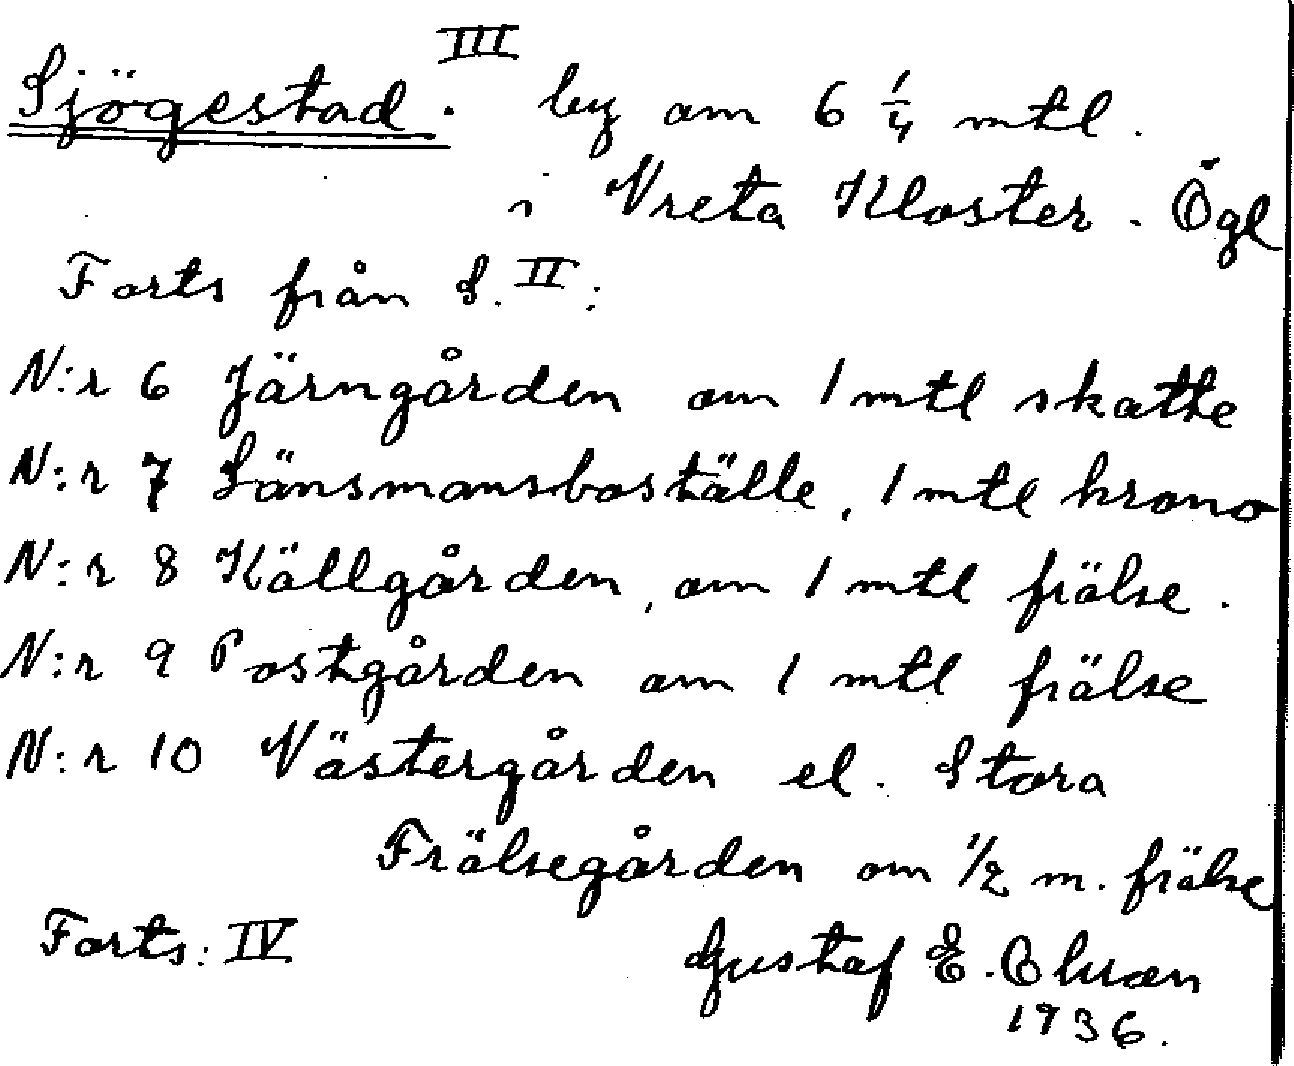 III
Sjögestad. by om 6 1/4 mtl.
i Vreta Kloster. Ögl
Forts från S. II:
N:r 6 Järngården om 1 mtl skatte
N:r 7 Länsmansboställe, 1 mtl krono
N:r 8 Källgården, om 1 mtl frälse.
N:r 9 Postgården om 1 mtl frälse
N:r 10 Västergården el. Stora
Frälsegården om 1/2 m. frälse
Forts: IV
Gustaf E.
1936.